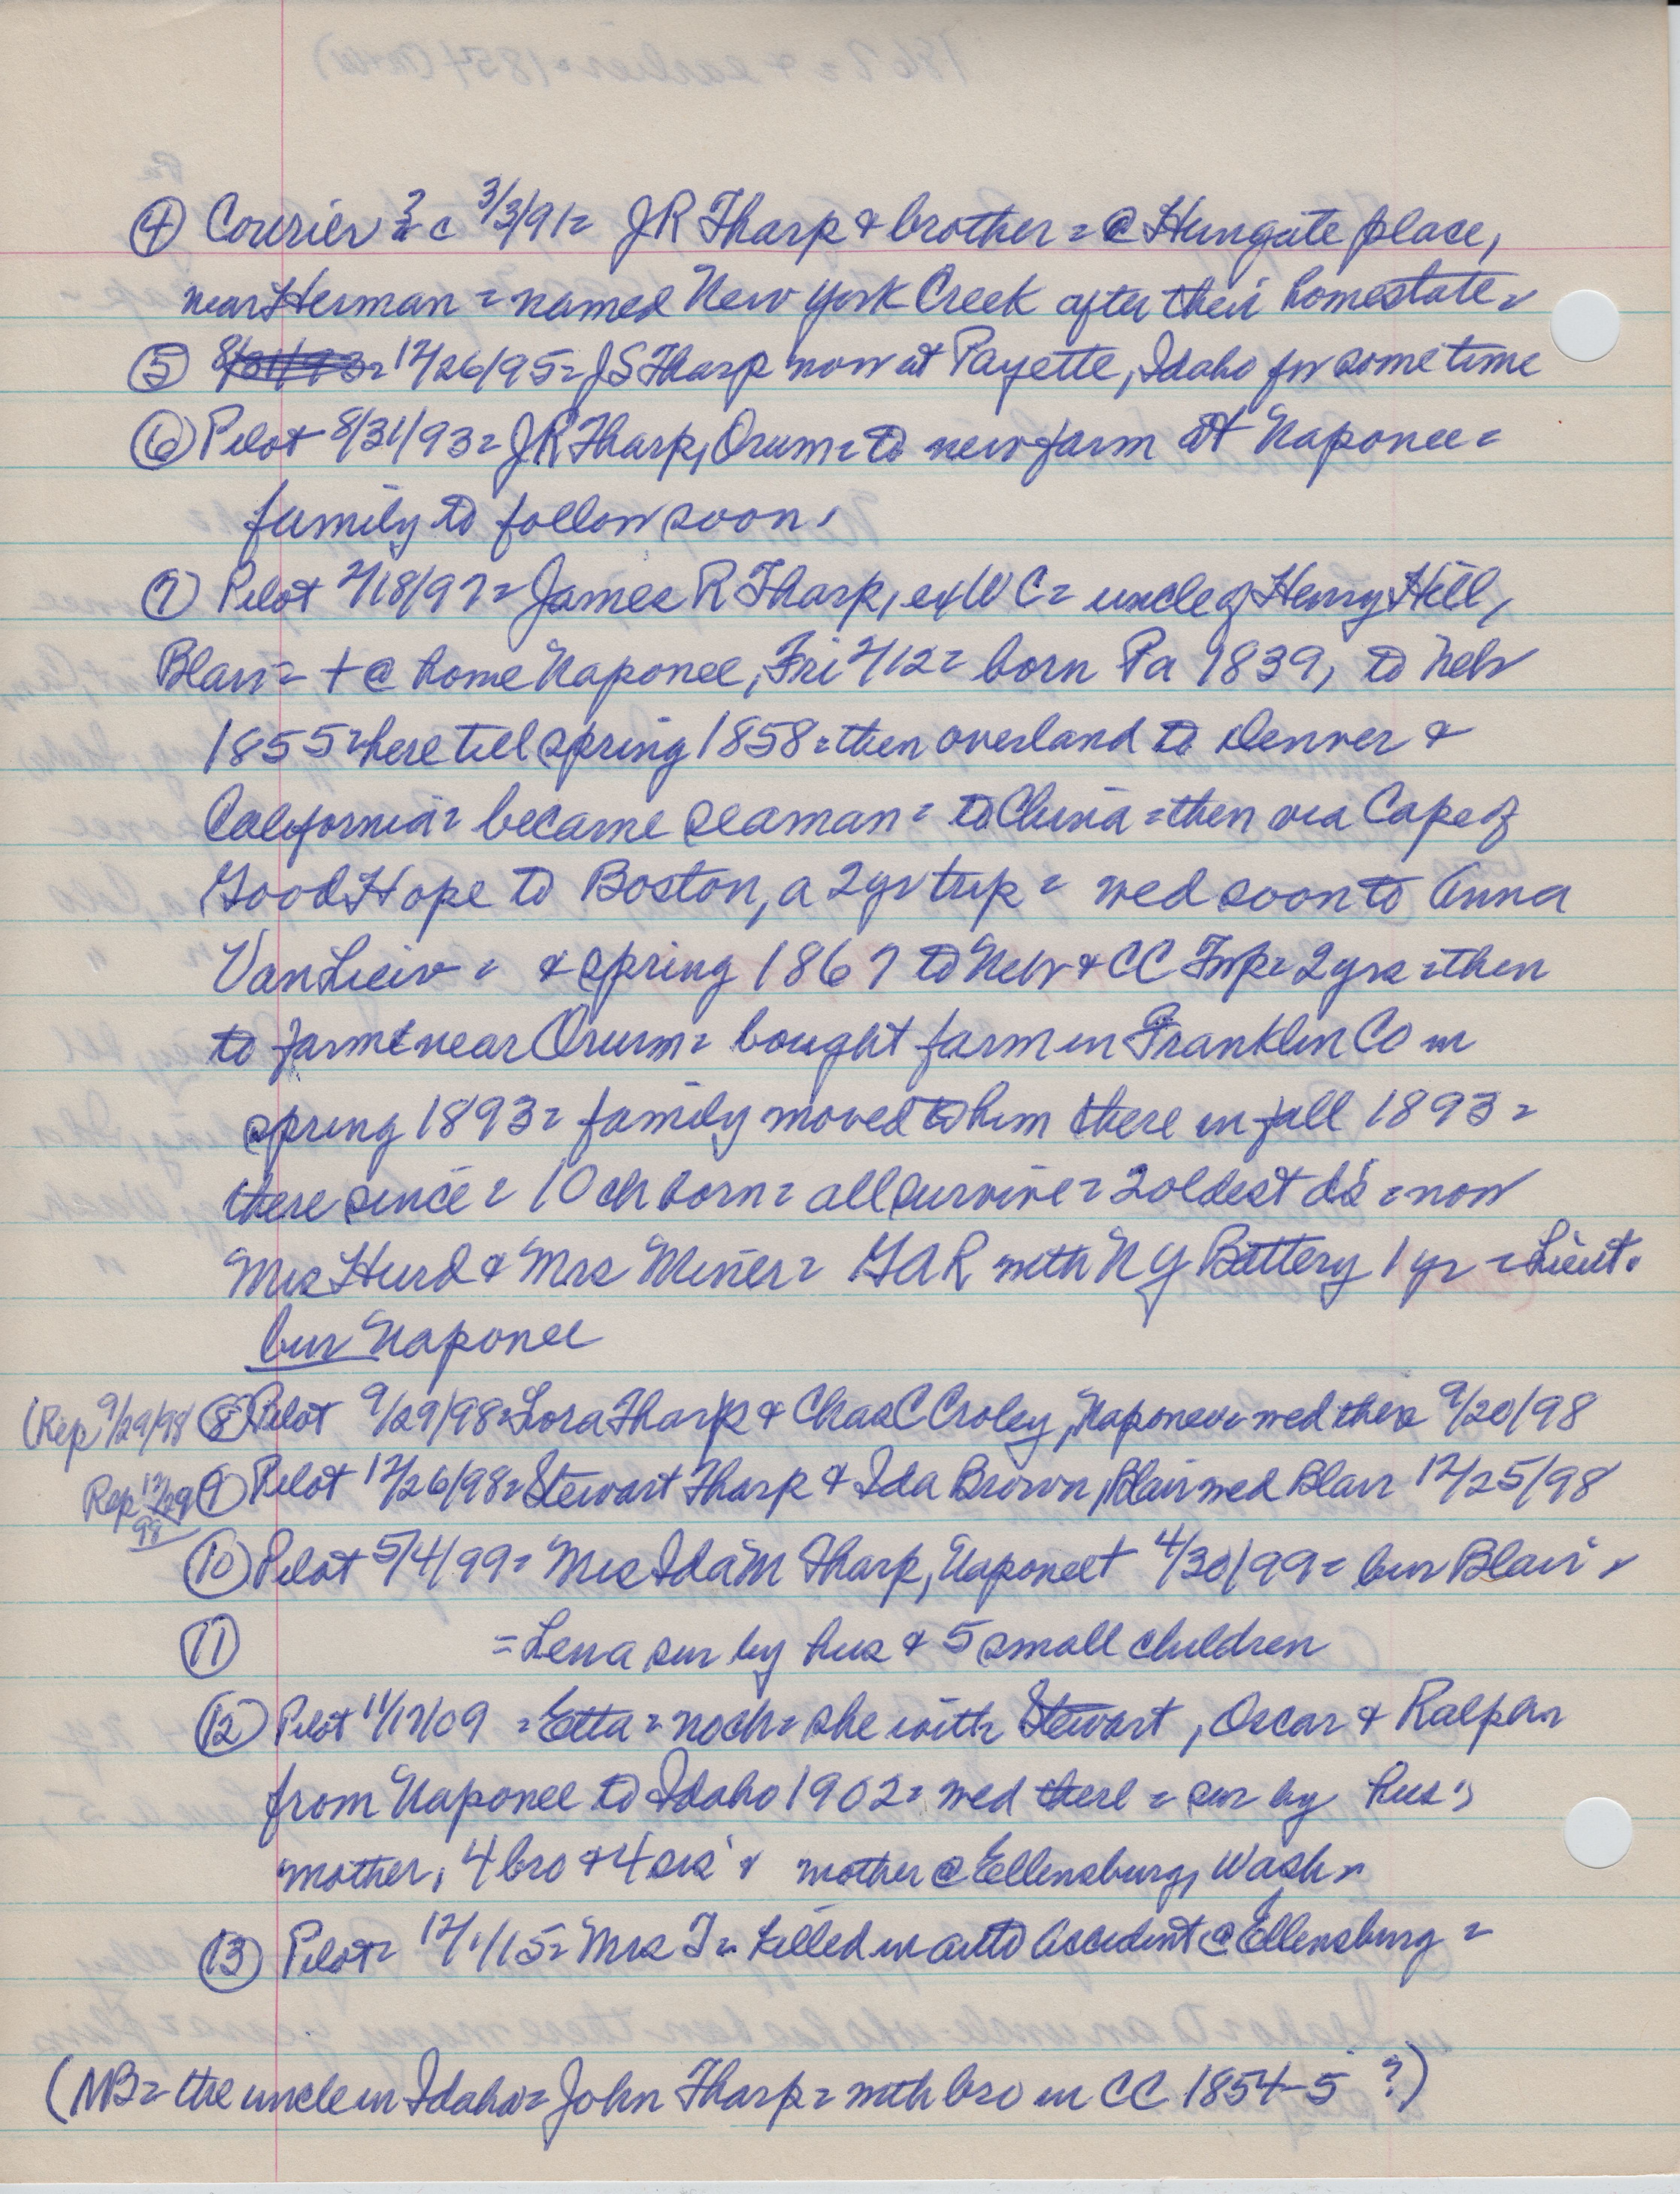 ④ Courier ? c 3/3/91= JR Tharp & brother = @ Hungate place,
near Herman = named New York Creek after their homestate.
⑤ 8/31/93= 12/26/95= JS Tharp now at Payette, Idaho for some time
⑥ Pilot 8/31/93= JR Tharp, Orum= to new farm at Naponee=
family to follow soon.
⑦ Pilot 2/18/97= James R Tharp, ex WC= uncle of Henry Hill,
Blair= + @ home Naponee, Fri 2/12= born Pa 1839, to Neb
1855= here till spring 1858= then overland to Denver &
California= became seaman= to China= then via Cape of
Good Hope to Boston, a 2 yr trip = wed soon to Anna
Van = & spring 1867 to Neb & CC Twp= 2 yrs = then
to farm near Orum= bought farm in Franklin Co in
spring 1893= family moved to him there in fall 1893=
there since = 10 ch born= all survive= 2 oldest ds = now
Mrs Hurd & Mrs Miner= GAR with NY Battery 1 yr = Lieut.
bur Naponee
(Rep 9/29/98 ⑧ Pilot 9/29/98= Lora Tharp & Chas C Croley, Naponee= wed there 9/20/98
Rep 12/29 98 ⑨ Pilot 12/26/98= Stewart Tharp & Ida Brown, Blair wed Blair 12/25/98
⑩ Pilot 5/4/99= Mrs Ida M Tharp, Naponee + 4/30/99= bur Blair.
⑪ = Lena sur by hus & 5 small children
⑫ Pilot 11/17/09 = Etta = no ch= she with Stewart, Oscar & Ralph
from Naponee to Idaho 1902= wed there = sur by hus,
mother, 4 bro & 4 sis & mother @ Ellensburg, Wash.
⑬ Pilot= 12/1/15= Mrs T= killed in auto accident @ Ellensburg =
(NB= the uncle in Idaho= John Tharp= with bro in CC 1854-5 ?)